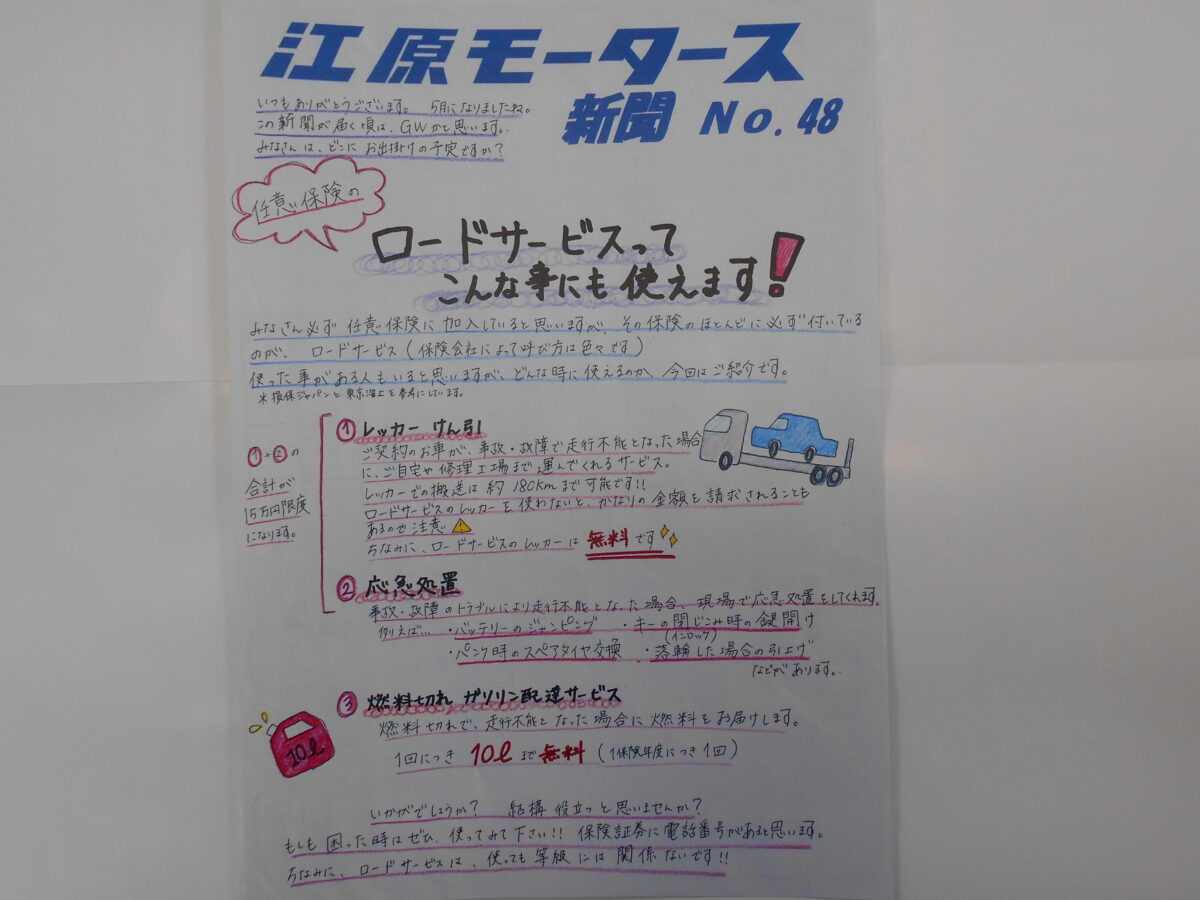 江原モータース
新聞 No.48
いつもありがとうございます。 5月になりましたね。
この新聞が届く頃は、GWかと思います。
みなさんは、どこにお出掛けの予定ですか?
任意保険の
ロードサービスって
こんな事にも使えます!
みなさん必ず任意保険に加入していると思いますが、その保険のほとんどに必ず付いている
のが、ロードサービス(保険会社によって呼び方は色々です)
使った事がある人もいると思いますが、どんな時に使えるのか、今回はご紹介です。
※損保ジャパンと東京海上を参考にしています。
①+②の
合計が
15万円限度
になります。
① レッカー けん引
ご契約のお車が、事故・故障で走行不能となった場合
に、ご自宅や修理工場まで運んでくれるサービス。
レッカーでの搬送は約180kmまで可能です!!
ロードサービスのレッカーを使わないと、かなりの金額を請求されることも
あるので注意
ちなみに、ロードサービスのレッカーは 無料です
② 応急処置
事故・故障のトラブルにより走行不能となった場合、現場で応急処置をしてくれます。
例えば… ・バッテリーのジャンピング ・キーの閉じこみ時の鍵開け
(インロック)
・パンク時のスペアタイヤ交換 ・落輪した場合の引上げ
などがあります。
③ 燃料切れ ガソリン配達サービス
燃料切れで、走行不能となった場合に燃料をお届けします。
10ℓ
1回につき 10ℓまで無料 (1保険年度につき1回)
いかがでしょうか? 結構役立つと思いませんか?
もしも困った時はぜひ、使ってみて下さい!! 保険証券に電話番号があると思います。
ちなみに、ロードサービスは、使っても等級には関係ないです!!